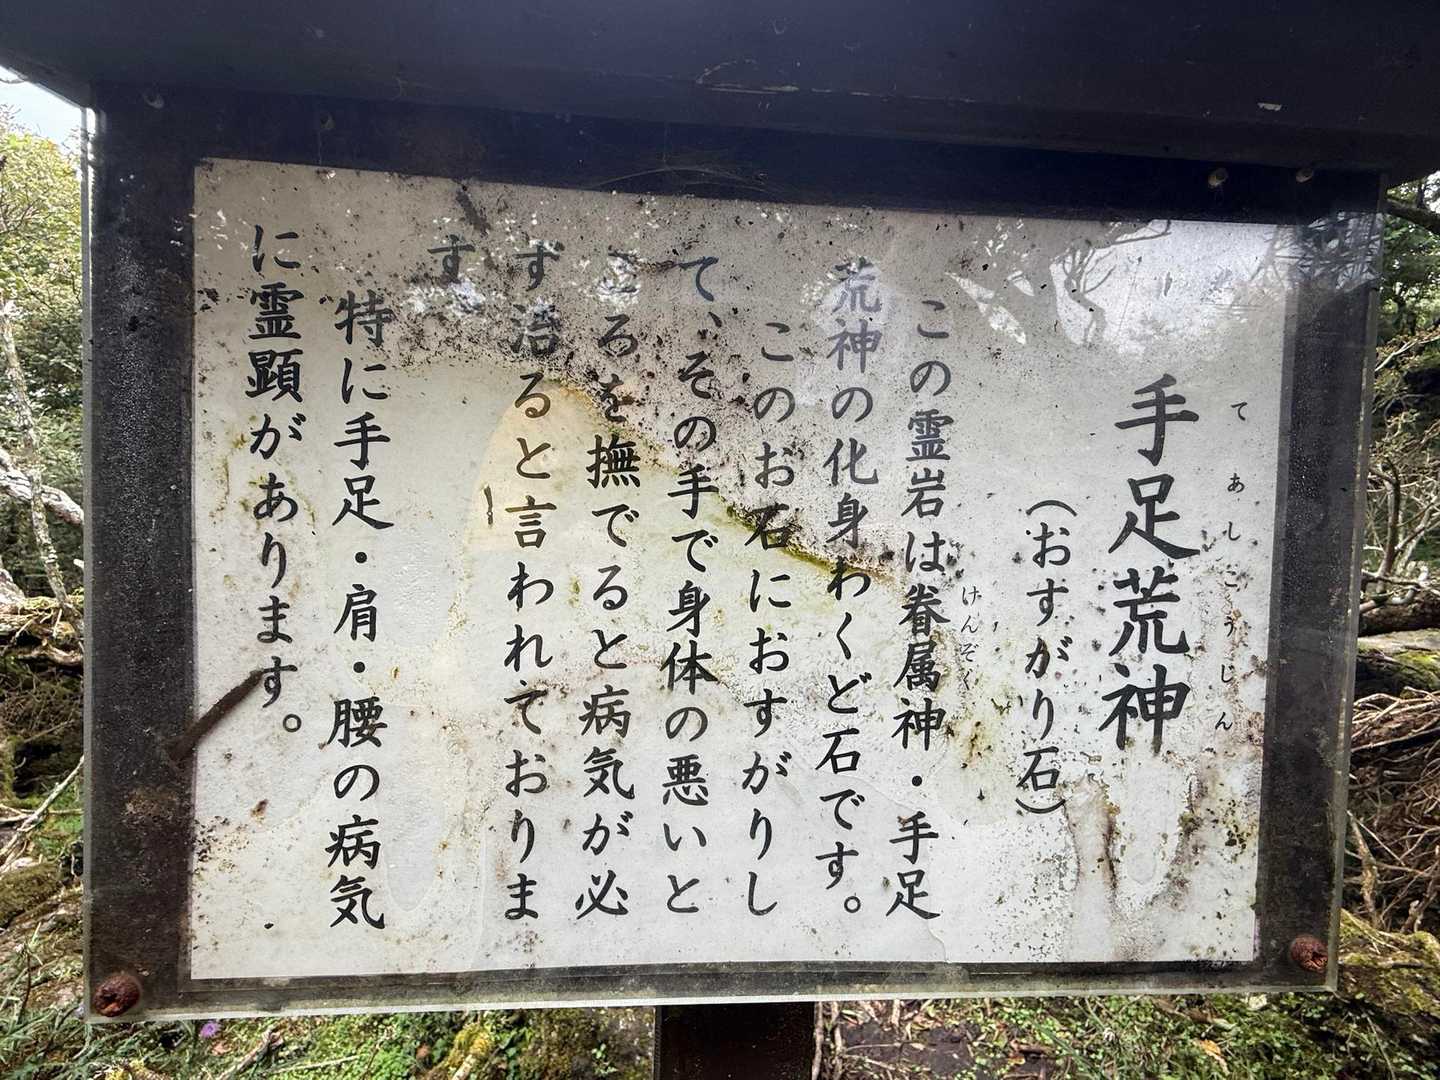 手足荒神
てあしこうじん
（おすがり石）
この霊岩は眷属神・手足
けんぞく
荒神の化身わくど石です。
このお石におすがりし
て、その手で身体の悪いと
ころを撫でると病気が必
ず治ると言われておりま
す
特に手足・肩・腰の病気
に霊顕があります。